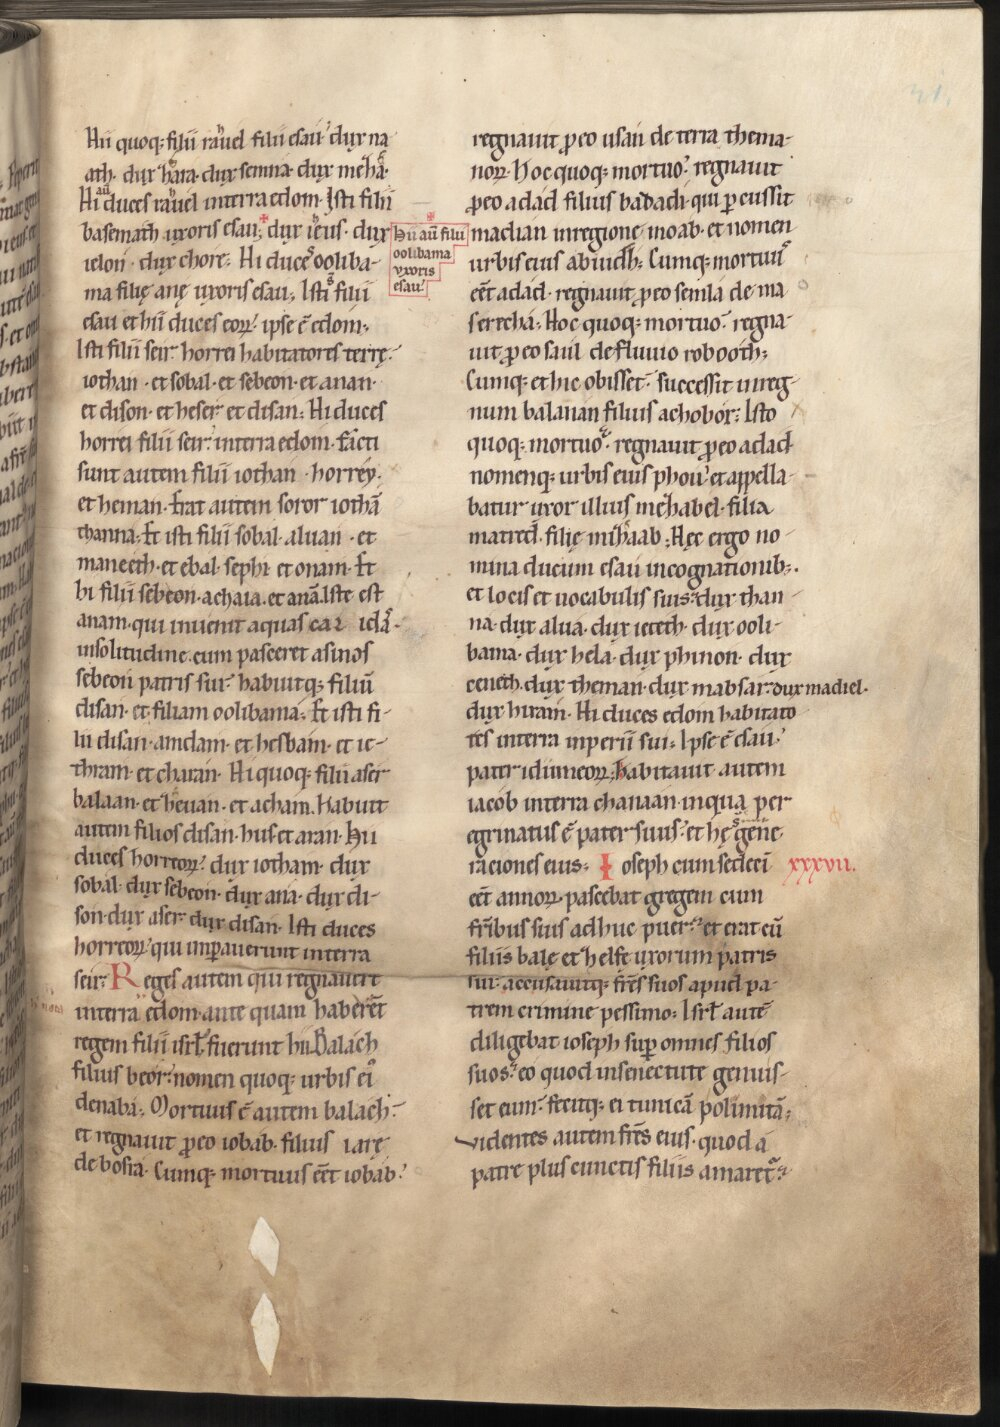 Hii quoq; filii rauel filii esau. dux na
ath. dux hara. dux semna. dux meha.
Hi au duces rauel interra edom. Isti filii
basemath uxoris esau; dux ieus. dux
ielon. dux chore; Hi duces ooliba-
ma filię anę uxoris esau; Isti s filii
esau et hii duces eoꝝ. ipse ē edom;
Isti filii seir horrei habitatores terrę.
iothan. et sobal. et sebeon. et anan.
et dison. et heser et disan; Hi duces
horrei filii seir. interra edom. Facti
sunt autem filii iothan. horrey.
et heman. Erat autem soror iothā
thanna; Et isti filii sobal. aluan. et
maneeth. et ebal. sephi et onam. Et
hi filii sebeon. achaia. et anā. Iste est
anam. qui inuenit aquas calidas
insolitudine. cum pasceret asinos
sebeon patris sui. habuitq; filiū
disan. et filiam oolibama; Et isti fi-
lii disan. amdam. et hesbam. et ie-
thram. et charan. Hi quoq; filii aser
balaan. et heuan. et acham. Habuit
autem filios disan. hus et aran. Hii
duces horreoꝝ. dux iotham. dux
sobal. dux sebeon. dux ana. dux di-
son. dux aser. dux disan. Isti duces
horreoꝝ. qui imꝑauerunt interra
seir. Reges autem qui regnauert
interra edom. ante quam haberēt
regem filii isrl. fuerunt hii. Balach
filius beor. nomen quoq; urbis ei
denaba; Mortuus ē autem balach.
et regnauit ꝓeo iobab. filius iarę
de bosra. Cumq; mortuus eēt iobab.
Hii aū filii
oolibama
uxoris
esau.
regnauit ꝓeo usan de terra thema-
noꝝ. Hoc quoq; mortuo. regnauit
ꝓeo adad filius badadi. qui ꝑcussit
madian inregione moab. et nomen
urbis eius abiudh; Cumq; mortuus
eēt adad. regnauit ꝓeo semla de ma
serecha; Hoc quoq; mortuo. regna-
uit ꝓeo saul de fluuio robooth;
Cumq; et hic obisset. successit inreg-
num balanan filius achobor; Isto
quoq; mortuo. regnauit ꝓeo adad
nomenq; urbis eius phou. et appella-
batur uxor illius mehabel. filia
matred. filię mihaab; Hęc ergo no-
mina ducum esau incognationib;.
et locis et uocabulis suis. dux than-
na. dux alua. dux ieteth. dux ooli-
bama. dux hela. dux phinon. dux
ceneth. dux theman. dux mabsar. dux madiel.
dux hiram. Hi duces edom habitato
tes interra inperii sui; Ipse ē esau.
pater idumeoꝝ; habitauit autem
iacob interra chanaan. inqua per
egrinatus ē pater suus. et hę s gene
raciones eius; Ioseph cum sedeci
xxxvii.
eēt annoꝝ. pascebat gregem cum
frībus suis adhuc puer. et erat cū
filiis balę et helfe uxorum patris
sui. accusauitq; frēs suos apud pa-
trem crimine pessimo; Isrl autē
diligebat ioseph suꝑ omnes filios
suos. eo quod insenectute genuis-
set eum. fecitq; ei tunicā polimitā;
Videntes autem frēs eius. quod a
patre plus cunctis filiis amaret.